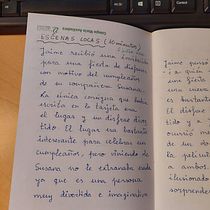 Colegio María Auxiliadora
ESCENAS LOCAS (10 minutos)
Jaime recibió una invitación
para una fiesta de disfraces
con motivo del cumpleaños
de su compañera Susana.
La única consigna que había
escrita en la tarjeta era
el lugar y un disfraz diver
El lugar era bastante
interesante para celebrar un
cumpleaños, pero viniendo de
Susana no le extrañaba nada
ya que es una persona
muy divertida e imaginativa
Jaime pensó
a quién
una fiesta
una
es bastante
el disfraz
de
ocurrió
de un
la película
y
ilusionado
sorprender